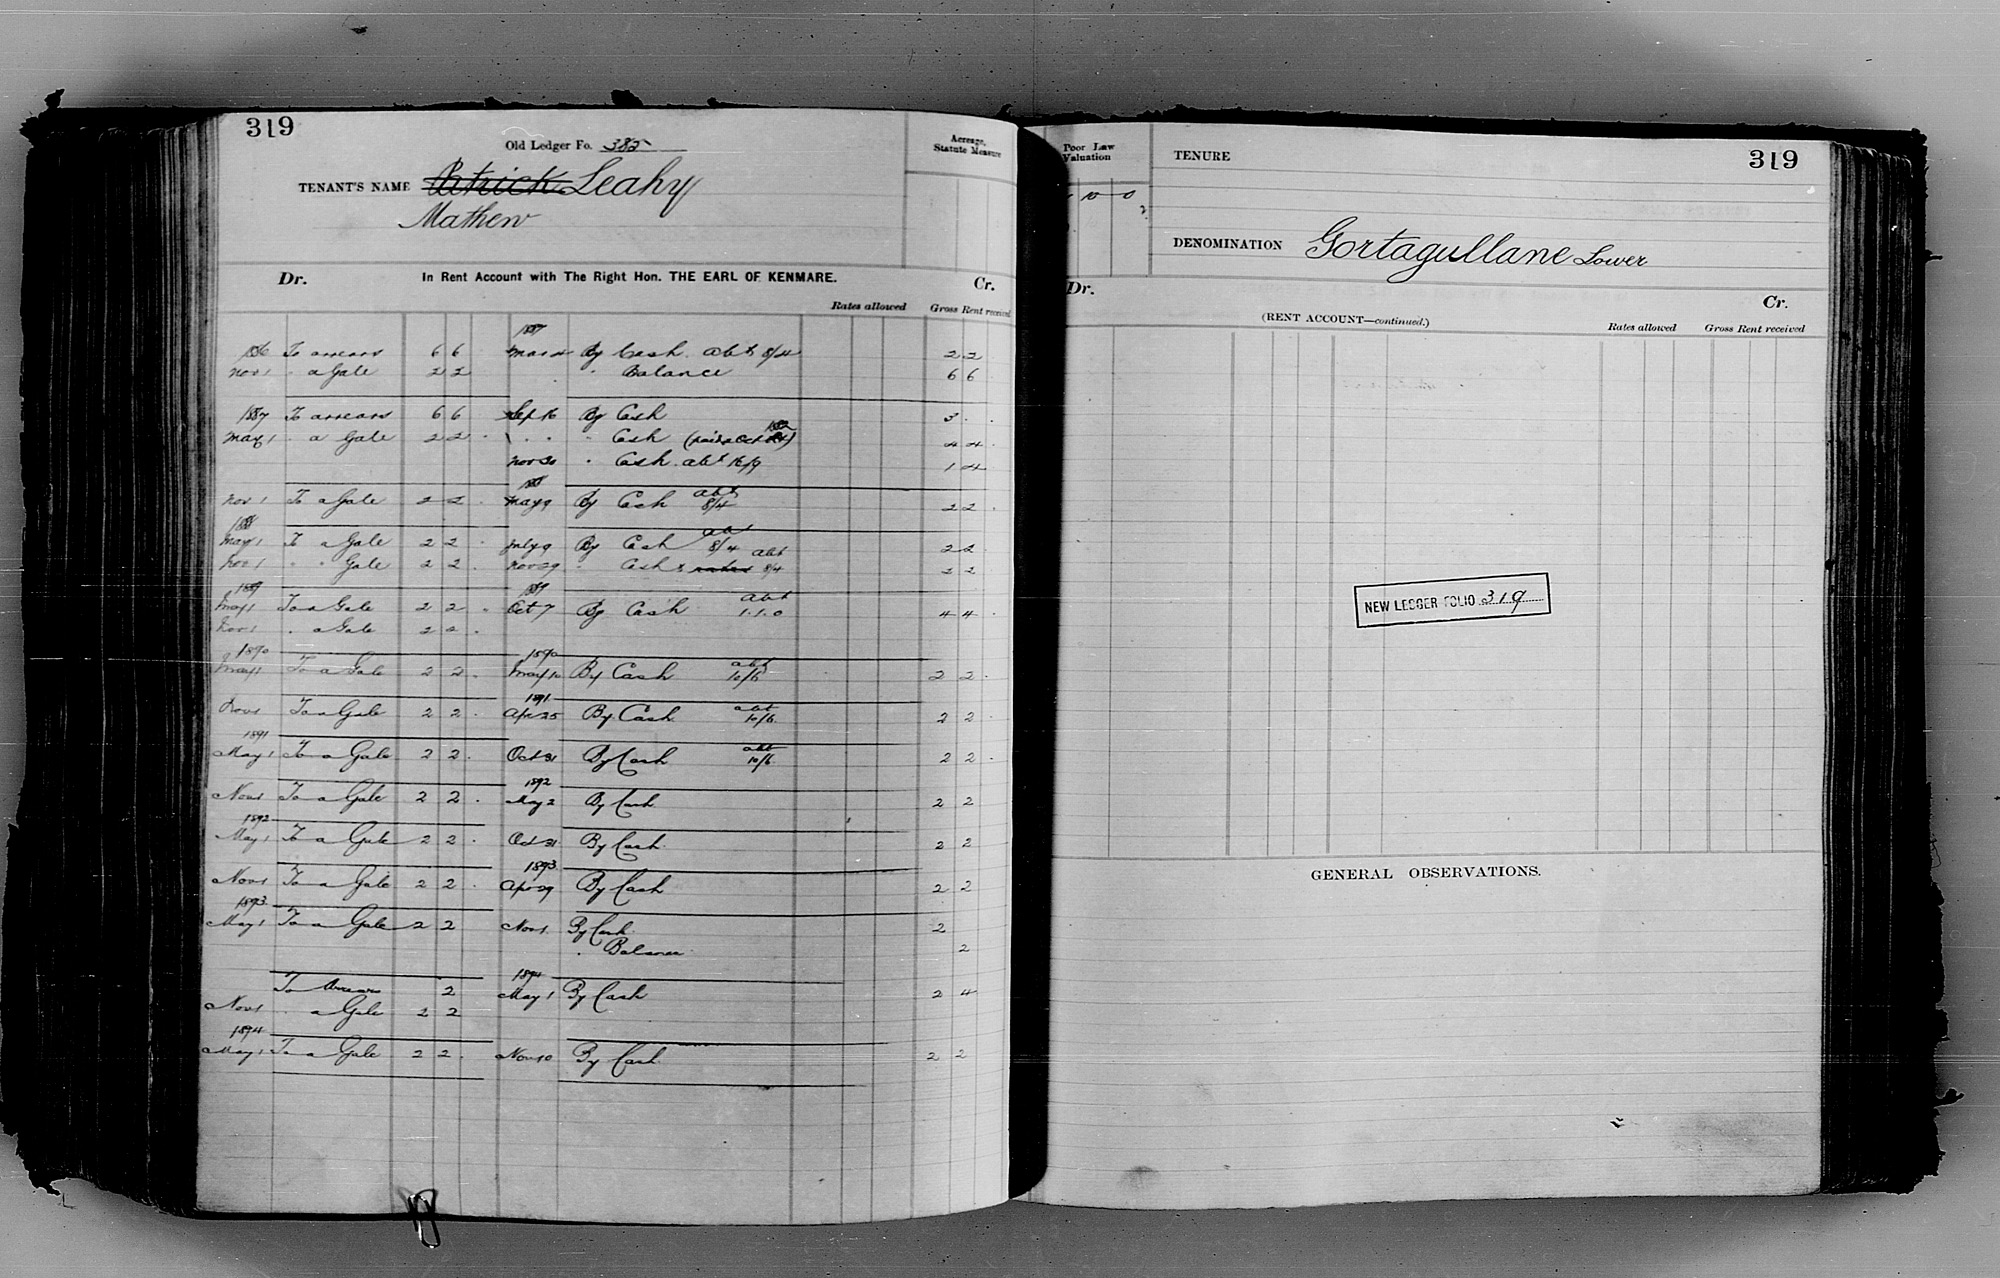 319
Old Ledger Fo. 385
Acreage, Statute Measure
TENANT'S NAME Patrick Leahy
Mathew
Dr. In Rent Account with The Right Hon. THE EARL OF KENMARE. Cr.
Rates allowed Gross Rent received
1887
1886 To arrears 6 6 Mar 4 By Cash abt 8/4 2 2
Nov 1 " a Gale 2 2 " Balance 6 6
1887 To arrears 6 6 Sep 16 By Cash 3
May 1 " a Gale 2 2 " Cash 4 4
Nov 30 " Cash abt 16/9 1 4
1888
Nov 1 To a Gale 2 2 May 9 By Cash abt 8/4 2 2
1888
May 1 To a Gale 2 2 July 9 By Cash abt 8/4 2 2
Nov 1 " a Gale 2 2 Nov 29 " Cash & rates abt 8/4 2 2
1889 1889
May 1 To a Gale 2 2 Oct 7 By Cash abt 1.1.0 4 4
Nov 1 " a Gale 2 2
1890 1890
May 1 To a Gale 2 2 May 10 By Cash abt 10/6 2 2
1891
Nov 1 To a Gale 2 2 Apr 25 By Cash abt 10/6 2 2
1891
May 1 To a Gale 2 2 Oct 31 By Cash abt 10/6 2 2
1892
Nov 1 To a Gale 2 2 May 2 By Cash 2 2
1892
May 1 To a Gale 2 2 Oct 31 By Cash 2 2
1893
Nov 1 To a Gale 2 2 Apr 29 By Cash 2 2
1893
May 1 To a Gale 2 2 Nov 1 By Cash 2
" Balance 2
1894
To Arrears 2 May 1 By Cash 2 4
Nov 1 " a Gale 2 2
1894
May 1 To a Gale 2 2 Nov 10 By Cash 2 2
Poor Law Valuation
10 0
TENURE 319
DENOMINATION Gortagullane Lower
Dr. Cr.
(RENT ACCOUNT—continued.)
Rates allowed Gross Rent received
NEW LEDGER FOLIO 319
GENERAL OBSERVATIONS.